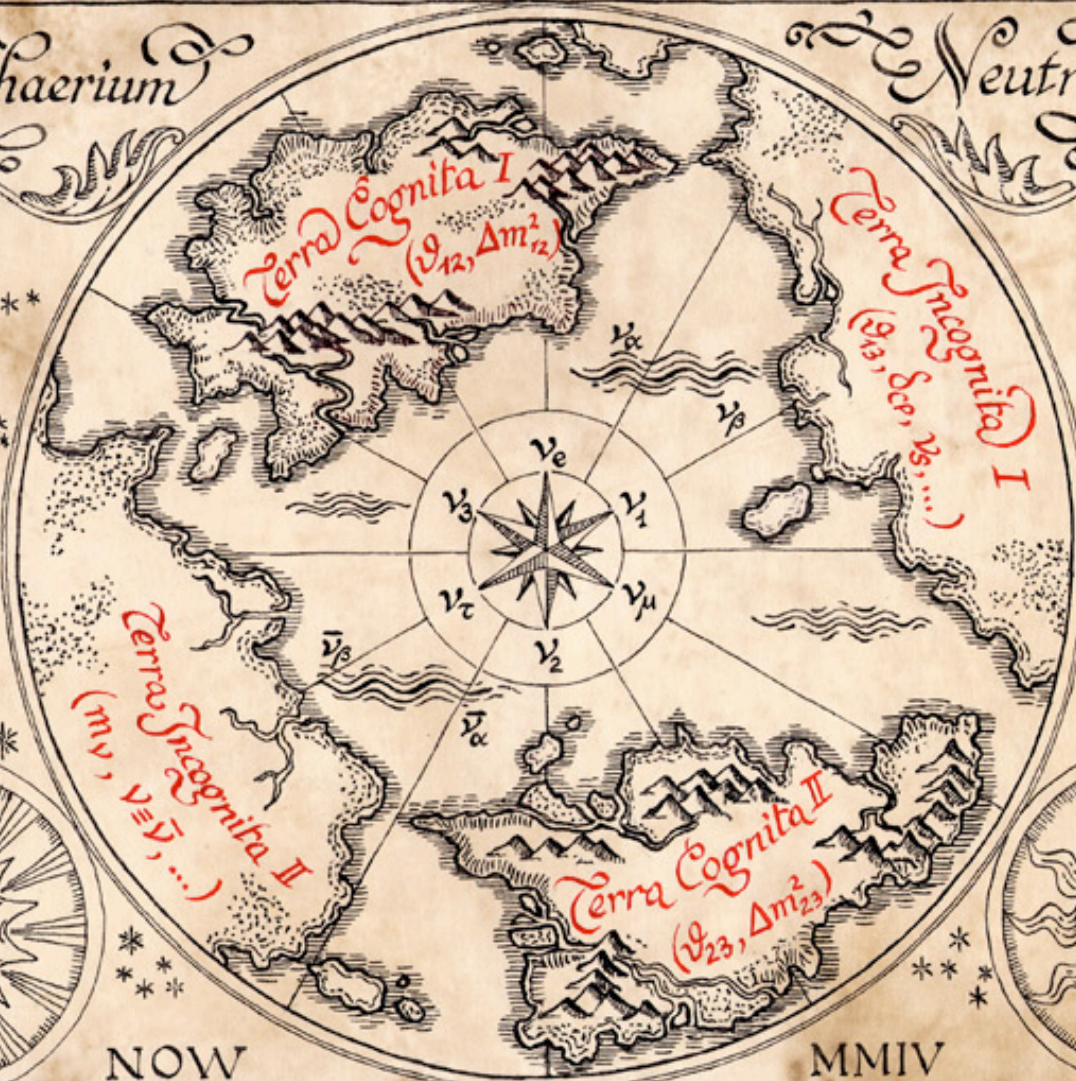 haerium
Neutr
Terra Cognita I
(ϑ₁₂, Δm²₁₂)
Terra Incognita I
(ϑ₁₃, δCP, νs, ...)
να
νβ
νe
ν3
ν1
ντ
νμ
ν2
ν̄β
ν̄α
Terra Incognita II
(mν, ν≡ν̄, ...)
Terra Cognita II
(ϑ₂₃, Δm²₂₃)
NOW
MMIV